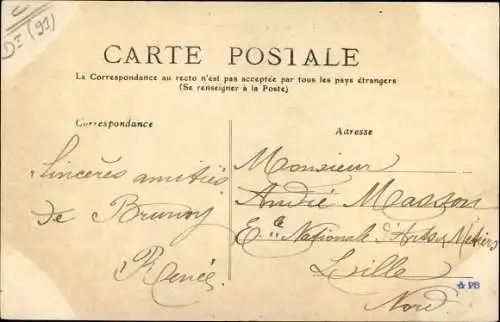 Dt (91)
CARTE POSTALE
La Correspondance au recto n'est pas acceptée par tous les pays étrangers
(Se renseigner à la Poste)
Correspondance
Adresse
Sincères amitiés
de Brunoy
Renée
Monsieur
André Masson
Ecle Nationale d'Arts & Métiers
Lille
Nord
PB